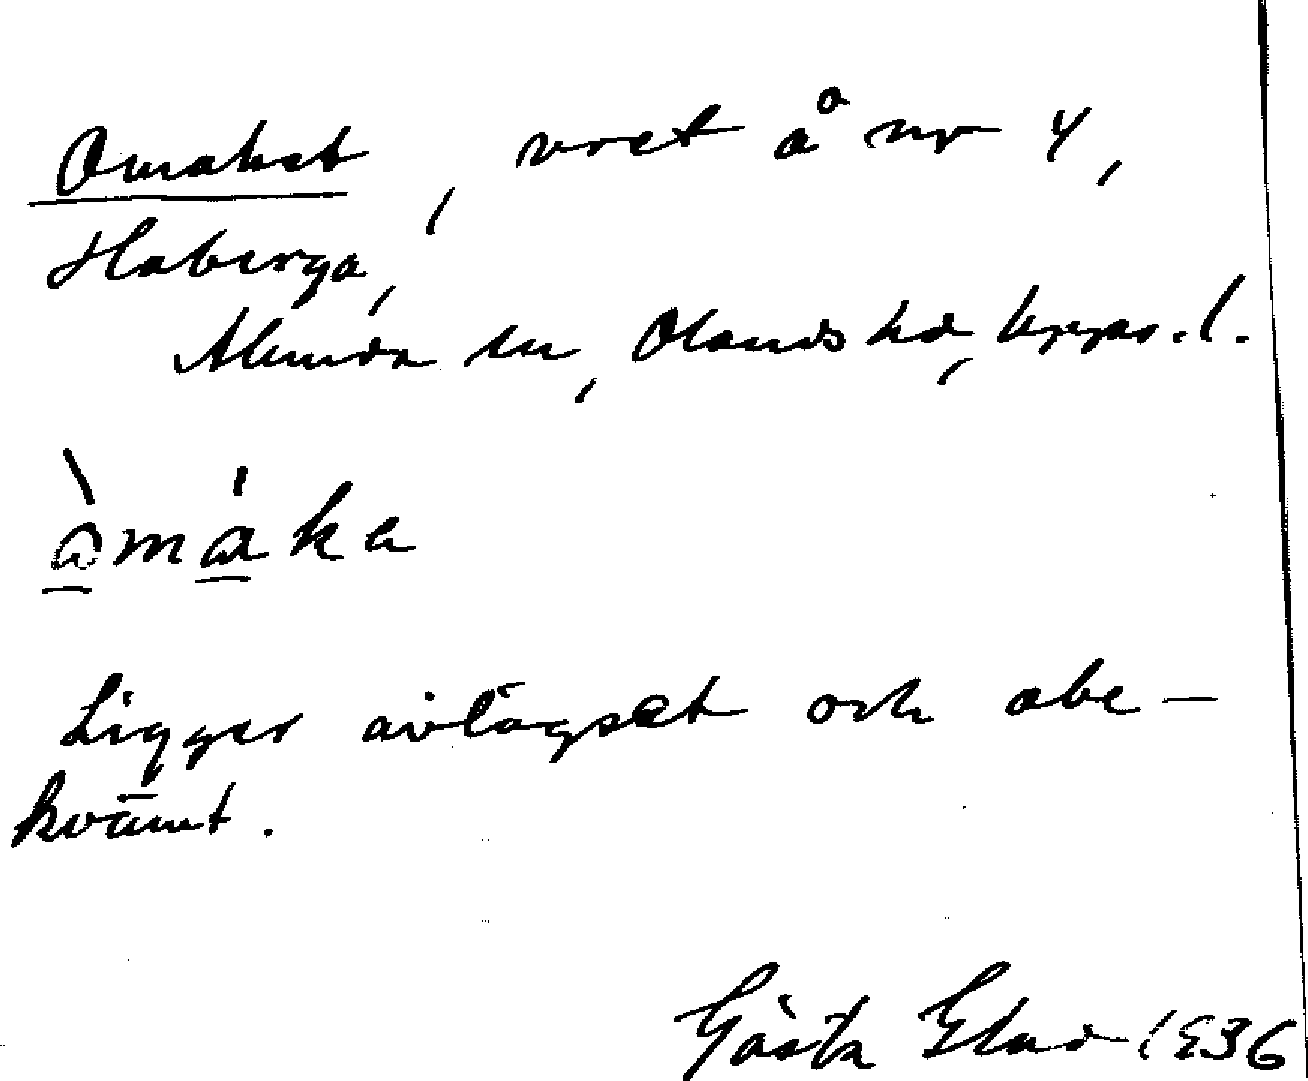 Omaket, vret å nr 4,
Haberga,
Alunda sn, Olands hd, Upps. l.
òmáka
Ligger avlägset och obe-
kvämt.
Gösta 1936